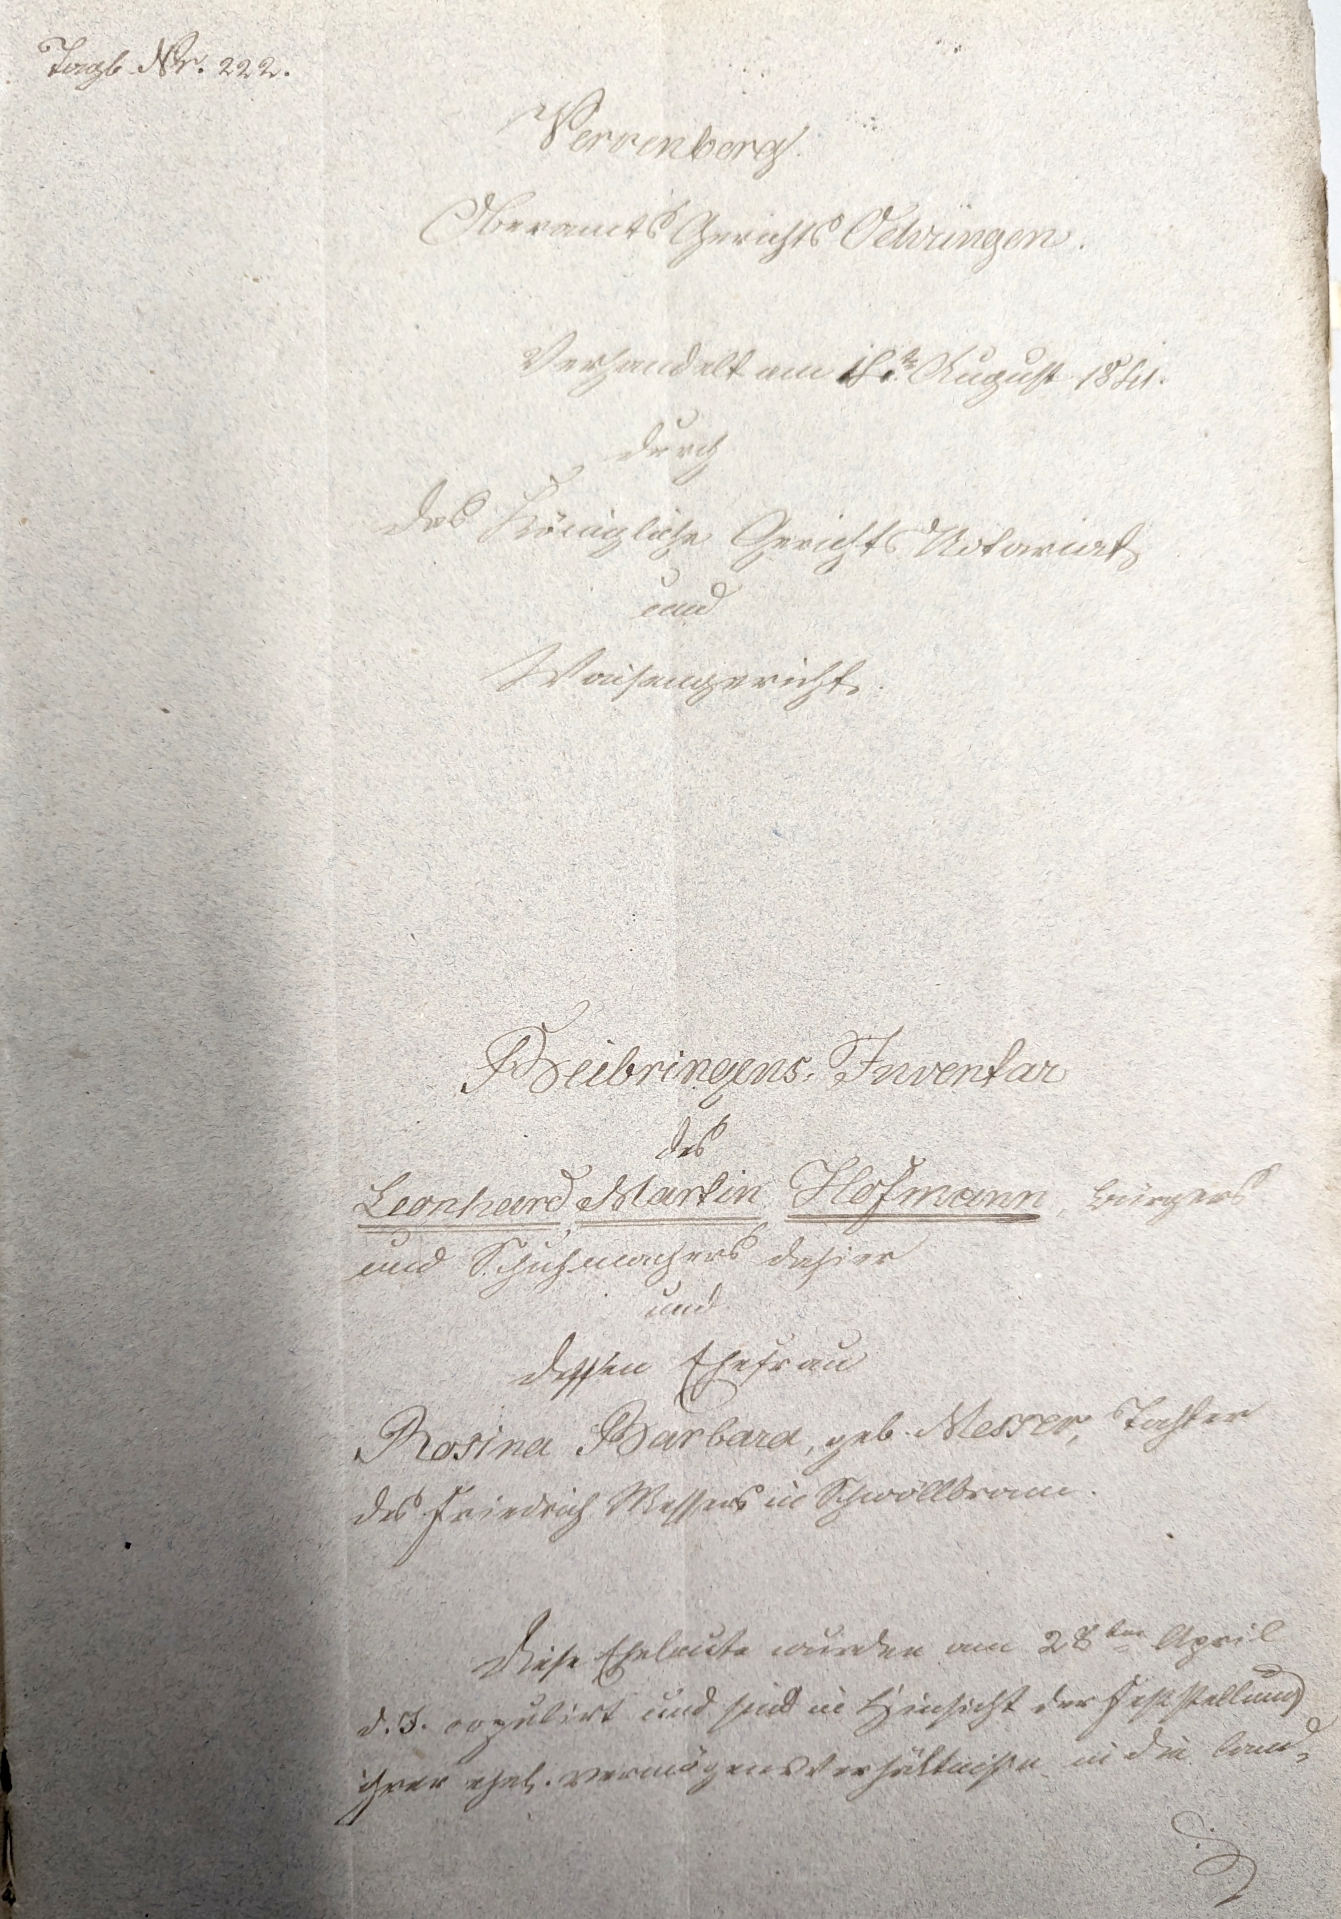 Tagb. Nr. 222.
Verrenberg.
Oberamts Gerichts Oehringen.
Verhandelt am August 1841.
durch
das Königliche Gerichts Notariat
und
Waisengericht.
Beibringens-Inventar
des
Leonhard Martin Hofmann, Bürgers
und Schuhmachers dahier
und
dessen Ehefrau
Rosina Barbara, geb. Messer, Tochter
des Friedrich Messers in Schwöllbronn.
Diese Eheleute wurden am 28ten April
d. J. copulirt und sind in Hinsicht der Feststellung
ihrer ehel. Vermögensverhältnisse in die Land-